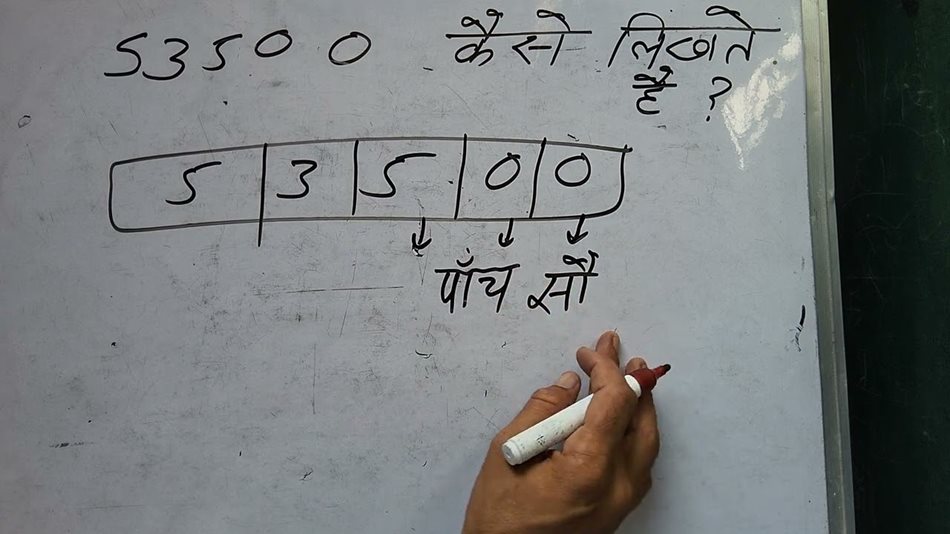 53500 कैसे लिखते
है ?
5 3 5 0 0
पाँच सौ